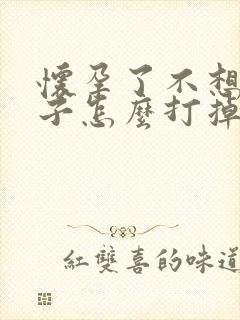 懷孕了不想
子怎麼打掉
紅雙喜的味道